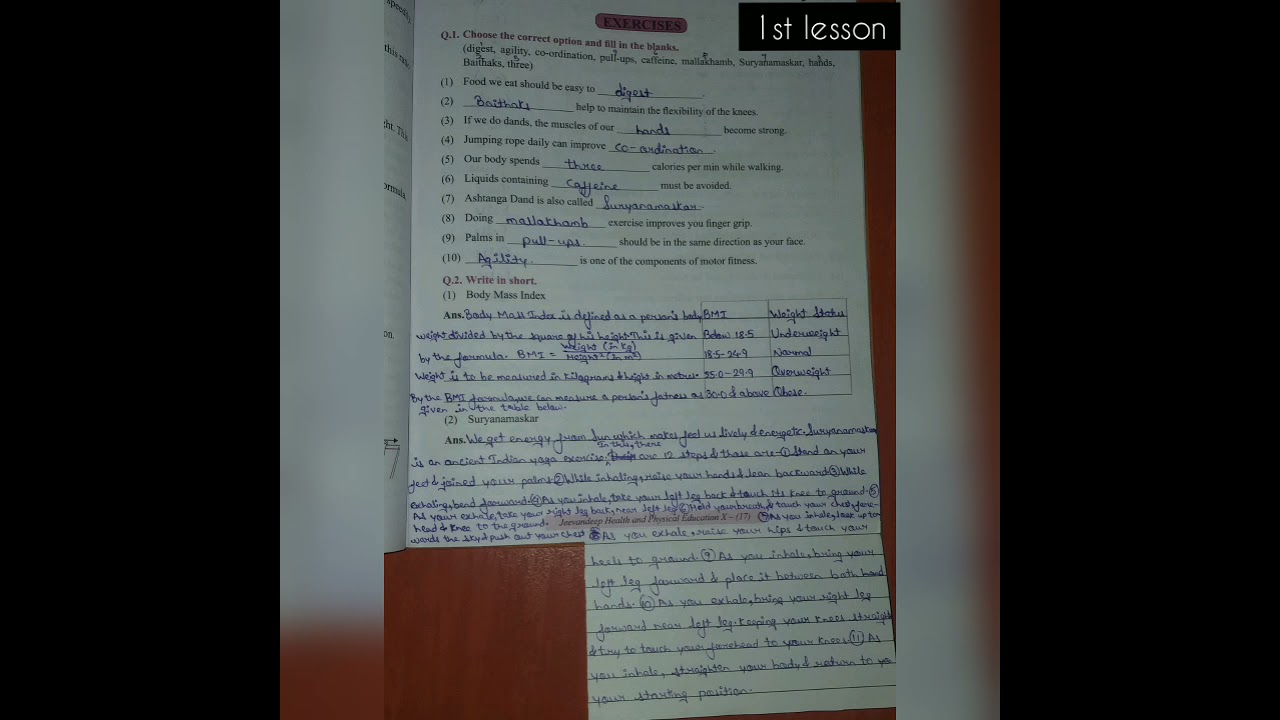 1st lesson
speedily.
this rate
ght. This
ormula.
on.
EXERCISES
Q.1. Choose the correct option and fill in the blanks.
(digest, agility, co-ordination, pull-ups, caffeine, mallakhamb, Suryanamaskar, hands,
Baithaks, three)
(1) Food we eat should be easy to digest.
(2) Baithaks help to maintain the flexibility of the knees.
(3) If we do dands, the muscles of our hands become strong.
(4) Jumping rope daily can improve co-ordination.
(5) Our body spends three calories per min while walking.
(6) Liquids containing caffeine must be avoided.
(7) Ashtanga Dand is also called Suryanamaskar.
(8) Doing mallakhamb exercise improves you finger grip.
(9) Palms in pull-ups should be in the same direction as your face.
(10) Agility is one of the components of motor fitness.
Q.2. Write in short.
(1) Body Mass Index
Ans. Body Mass Index is defined as a person's body BMI Weight Status
weight divided by the square of his height. This is given Below 18.5 Underweight
by the formula. BMI = Weight (in kg) / Height² (in m²) 18.5-24.9 Normal
Weight is to be measured in kilograms & height in metres. 25.0-29.9 Overweight
By the BMI formula, we can measure a person's fatness as 30.0 & above Obese.
given in the table below.
(2) Suryanamaskar
Ans. We get energy from Sun which makes feel us lively & energetic. Suryanamaskar
is an ancient Indian yoga exercise. In this, there are 12 steps & those are- ① Stand on your
feet & joined your palms ② While inhaling, raise your hands & lean backward ③ While
exhaling, bend forward. ④ As you inhale, take your left leg back & touch its knee to ground. ⑤
As your exhale, take your right leg back, near left leg ⑥ Hold your breath, & touch your chest, fore-
head & knee to the ground. Jeevandeep Health and Physical Education X – (17) ⑦ As you inhale, look up to
wards the sky & push out your chest ⑧ As you exhale, raise your hips & touch your
heels to ground. ⑨ As you inhale, bring your
left leg forward & place it between both hand
hands. ⑩ As you exhale, bring your right leg
forward near left leg. keeping your knees straight
& try to touch your forehead to your knees. ⑪ As
you inhale, straighten your body & return to yo
your starting position.